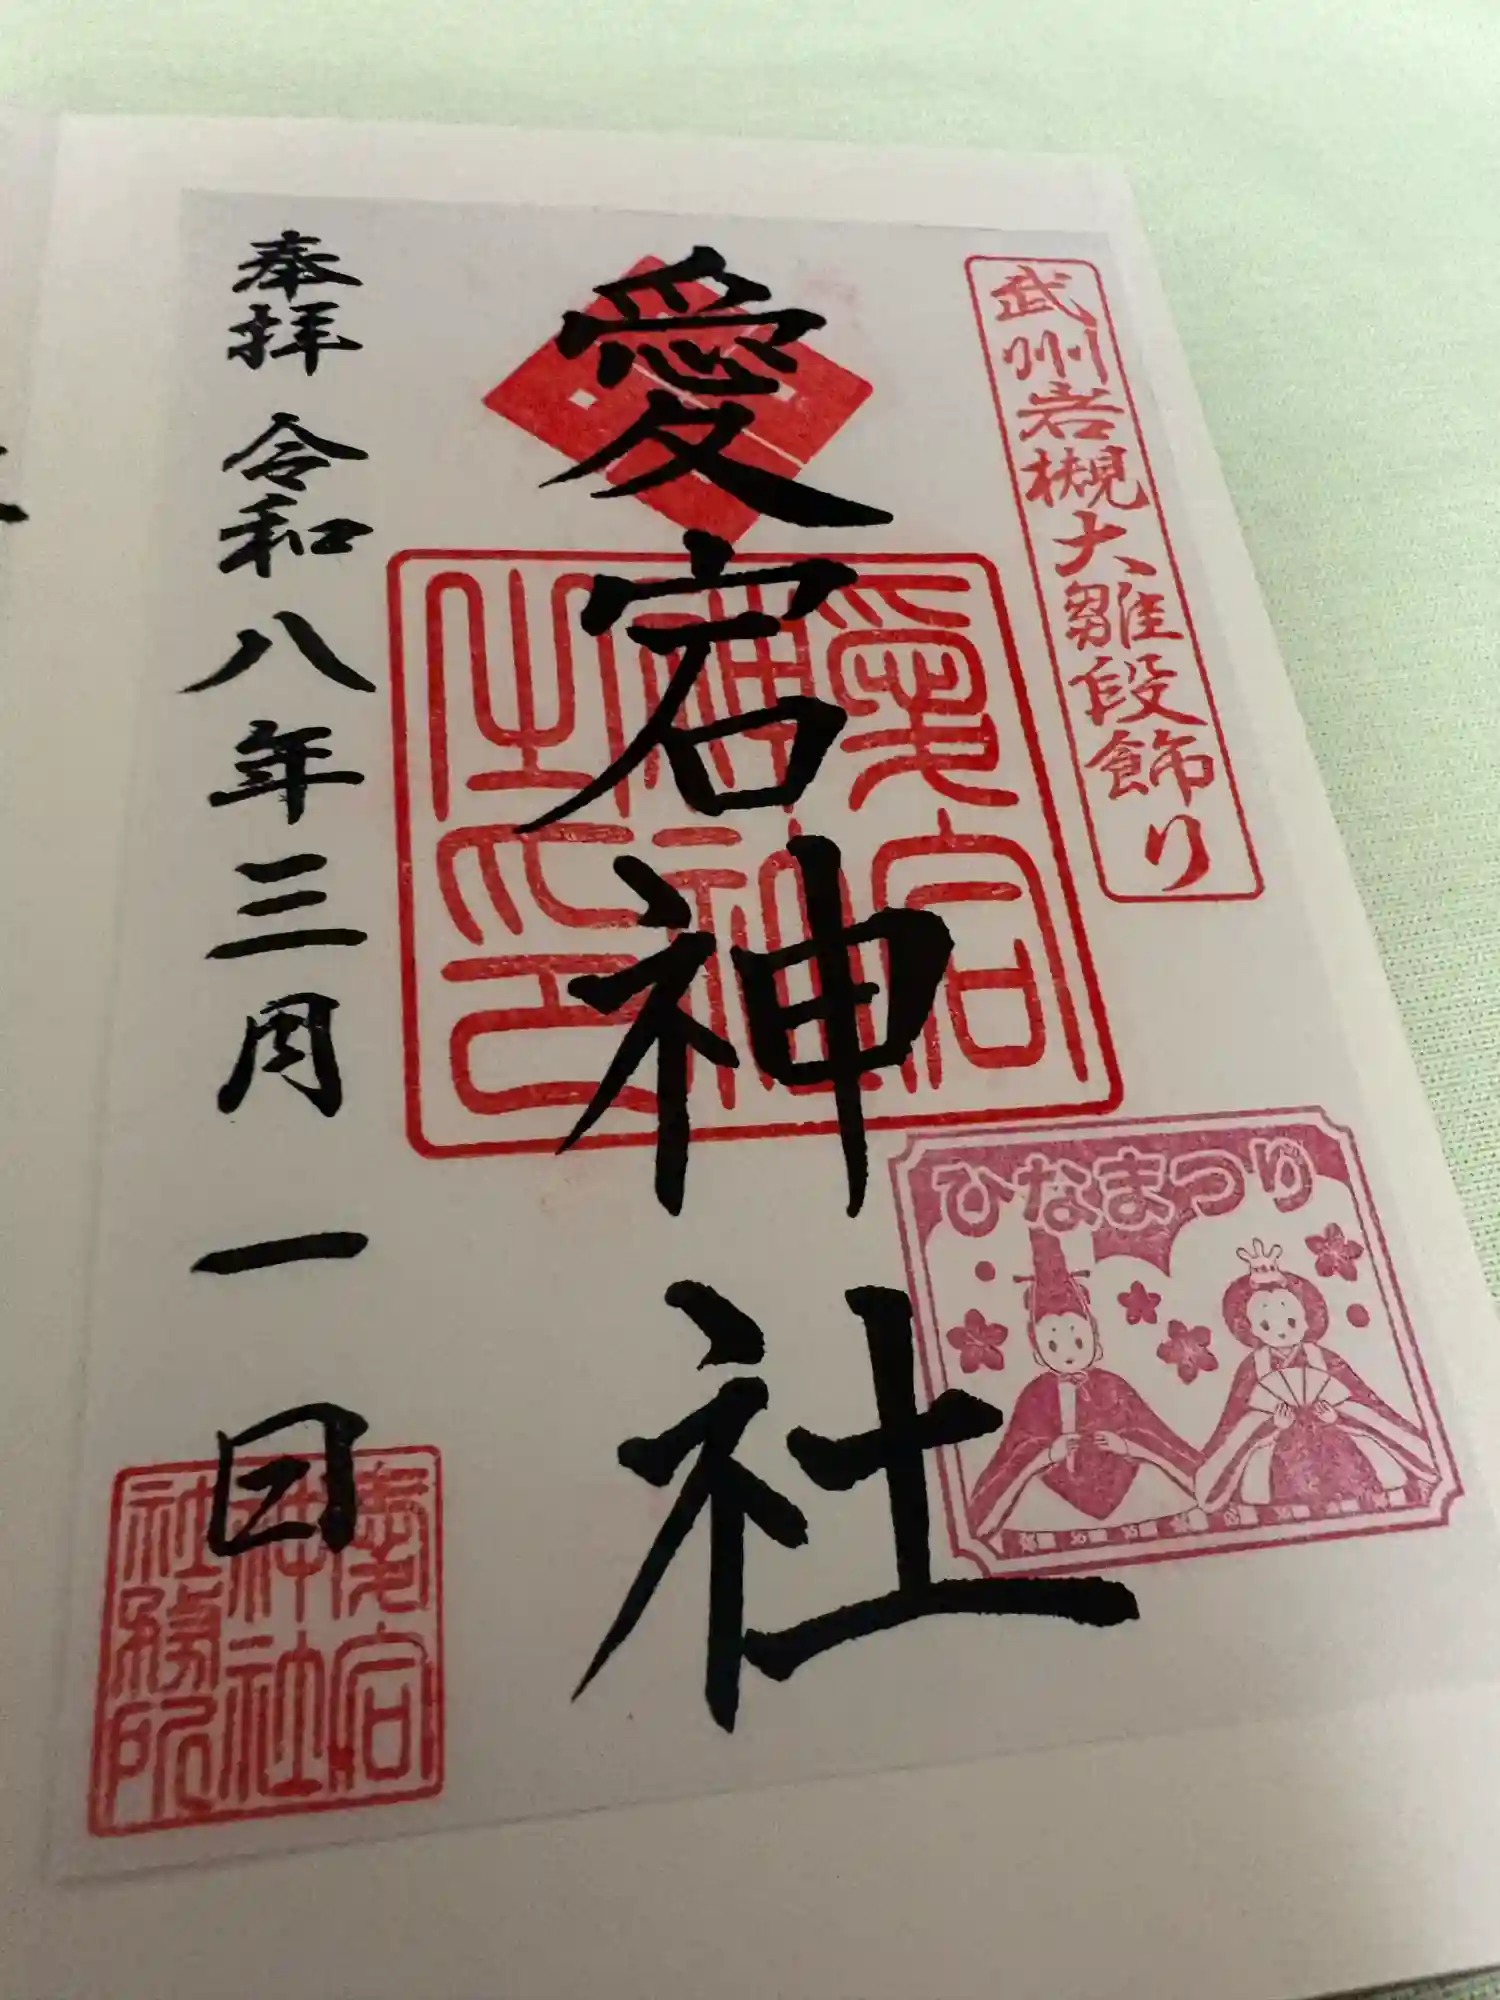 武州岩槻大雛段飾り
愛宕神社
奉拝 令和八年三月一日
愛宕
神社
之印
ひなまつり
愛宕
神社
社務所